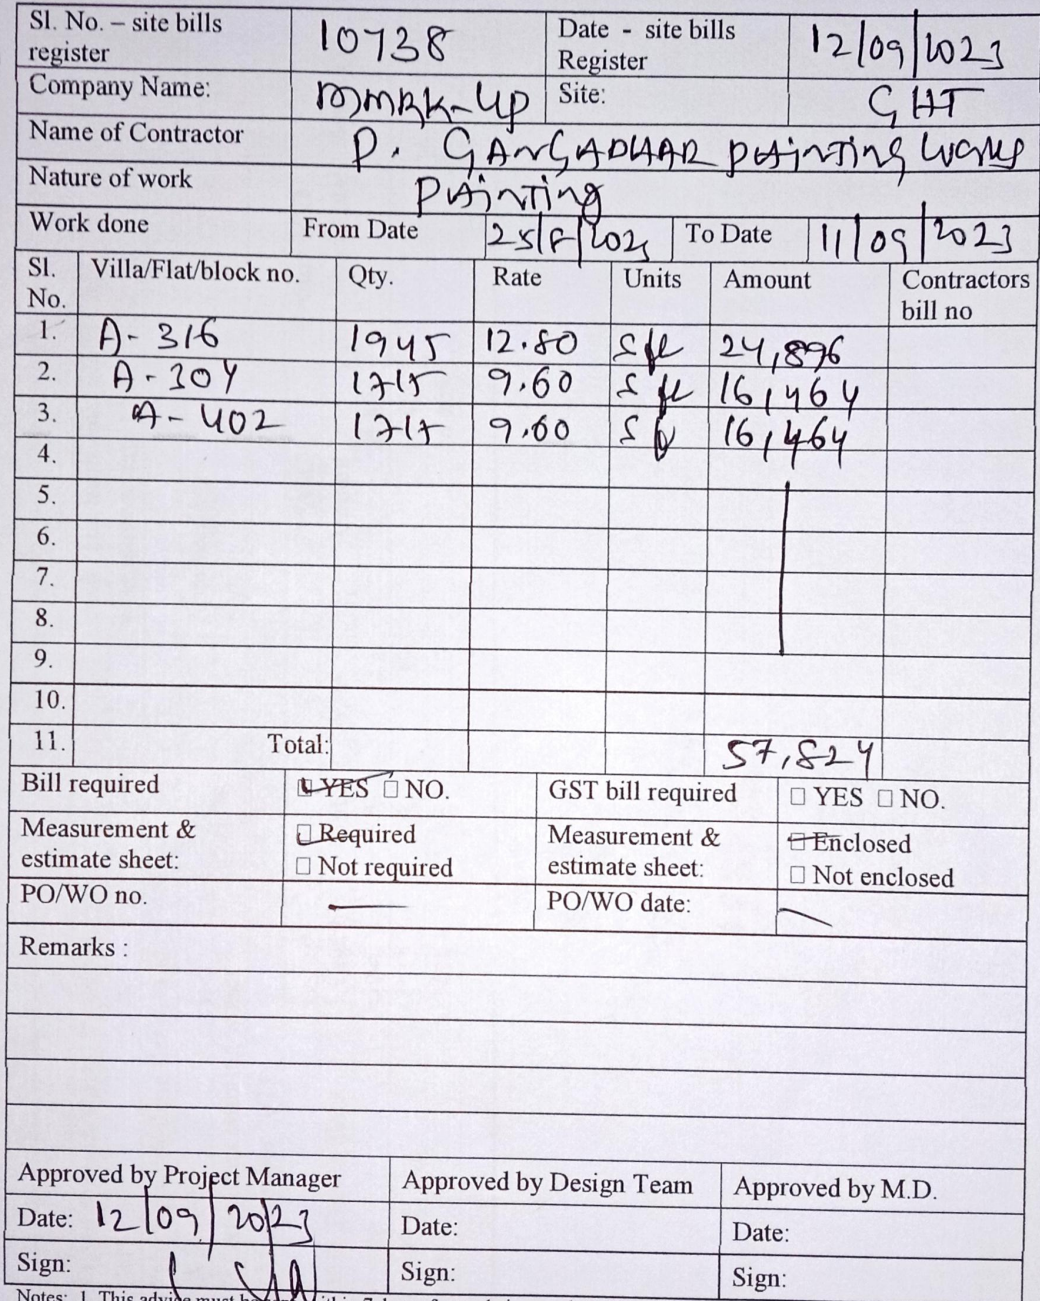 Sl. No. – site bills register 10738 Date - site bills Register 12/09/2023
Company Name: mmRk-Up Site: GHT
Name of Contractor P. GANGADHAR painting works
Nature of work painting
Work done From Date 25/8/2023 To Date 11/09/2023
Sl. No. Villa/Flat/block no. Qty. Rate Units Amount Contractors bill no
1. A-316 1945 12.80 sft 24,896
2. A-304 1715 9.60 sft 16,464
3. A-402 1715 9.60 sft 16,464
4.
5.
6.
7.
8.
9.
10.
11. Total: 57,824
Bill required YES NO. GST bill required YES NO.
Measurement & estimate sheet: Required Measurement & estimate sheet: Enclosed
Not required Not enclosed
PO/WO no. — PO/WO date: —
Remarks :
Approved by Project Manager Approved by Design Team Approved by M.D.
Date: 12/09/2023 Date: Date:
Sign: Sign: Sign:
Notes: 1. This advice must be